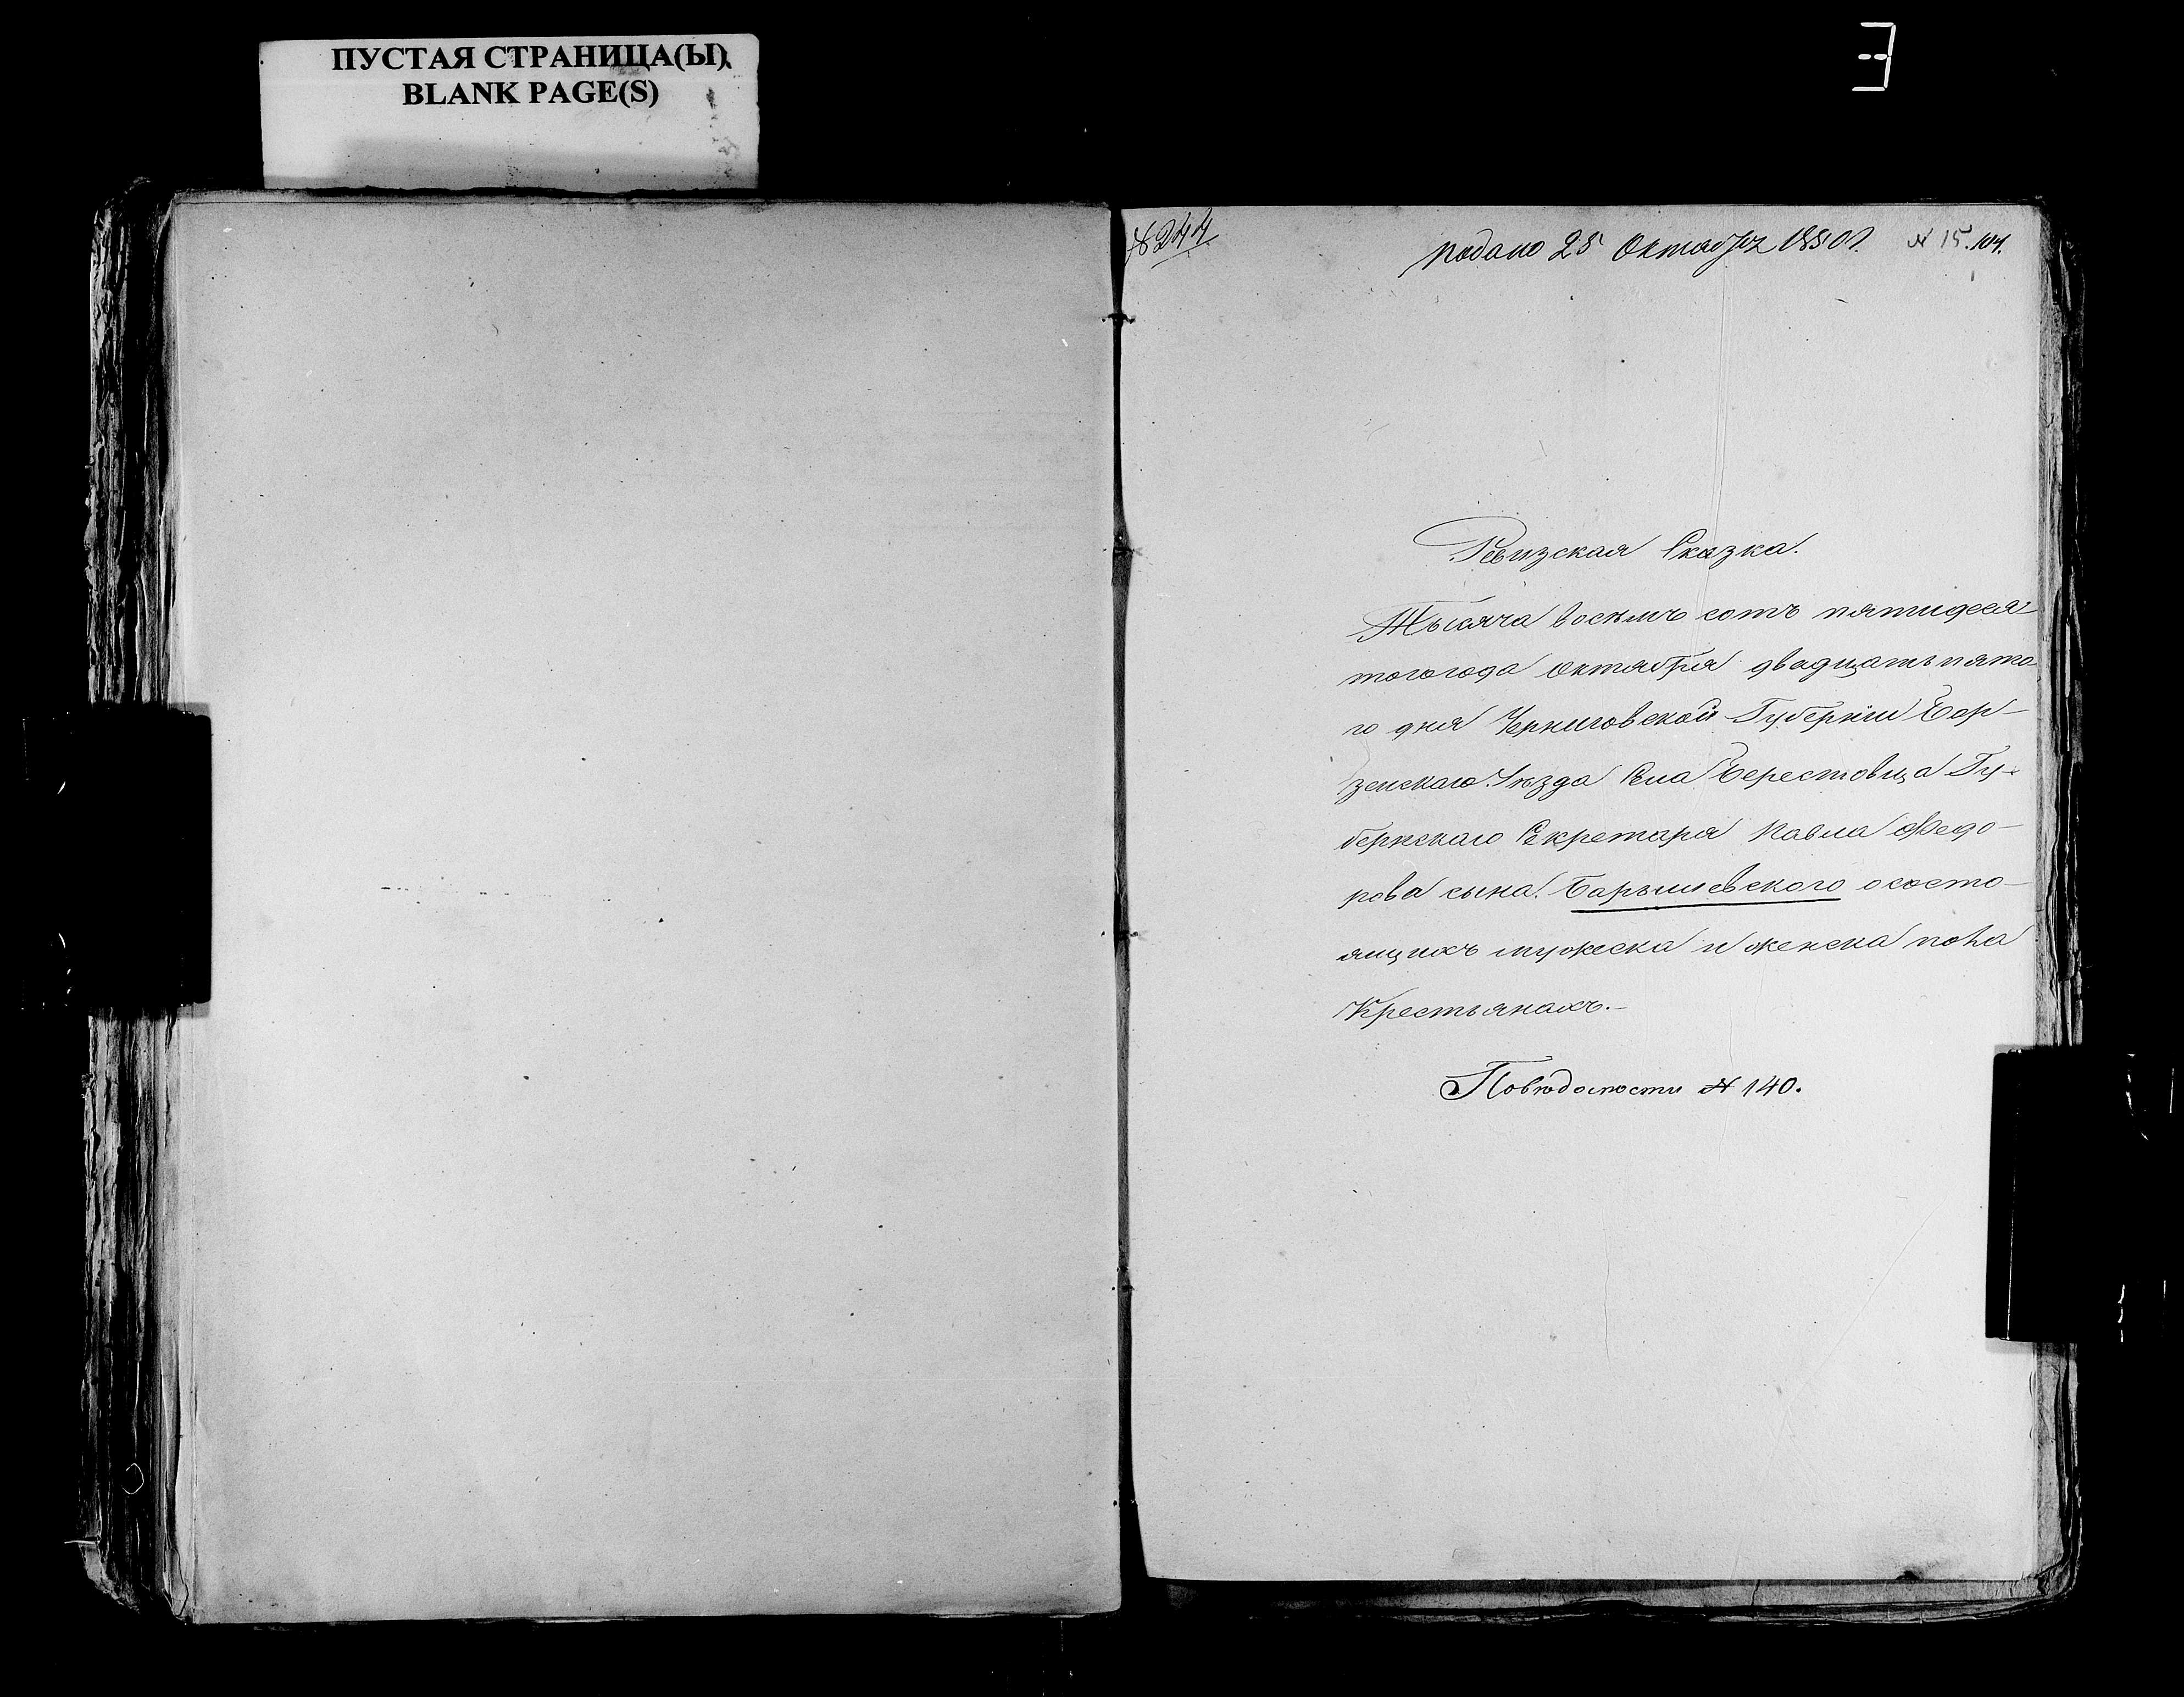 ПУСТАЯ СТРАНИЦА(Ы)
BLANK PAGE(S)
№ 244
подано 25 Октября 1850 г. № 15. 104.
Ревизская Сказка.
Тысяча восемь сотъ пятидеся-
тогогода Октября двадцатьпято
го дня Черниговской Губерніи Бор-
зенскаго Уѣзда Села Берестовца Гу-
бернскаго Секретаря Павла Ѳедо-
рова сына Барышевского о состо-
ящихъ мужеска и женска пола
Крестьянахъ.-
По вѣдомости № 140.